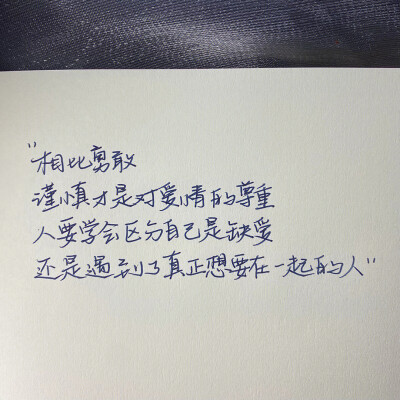 "相比勇敢
谨慎才是对爱情的尊重
人要学会区分自己是缺爱
还是遇到了真正想要在一起的人"